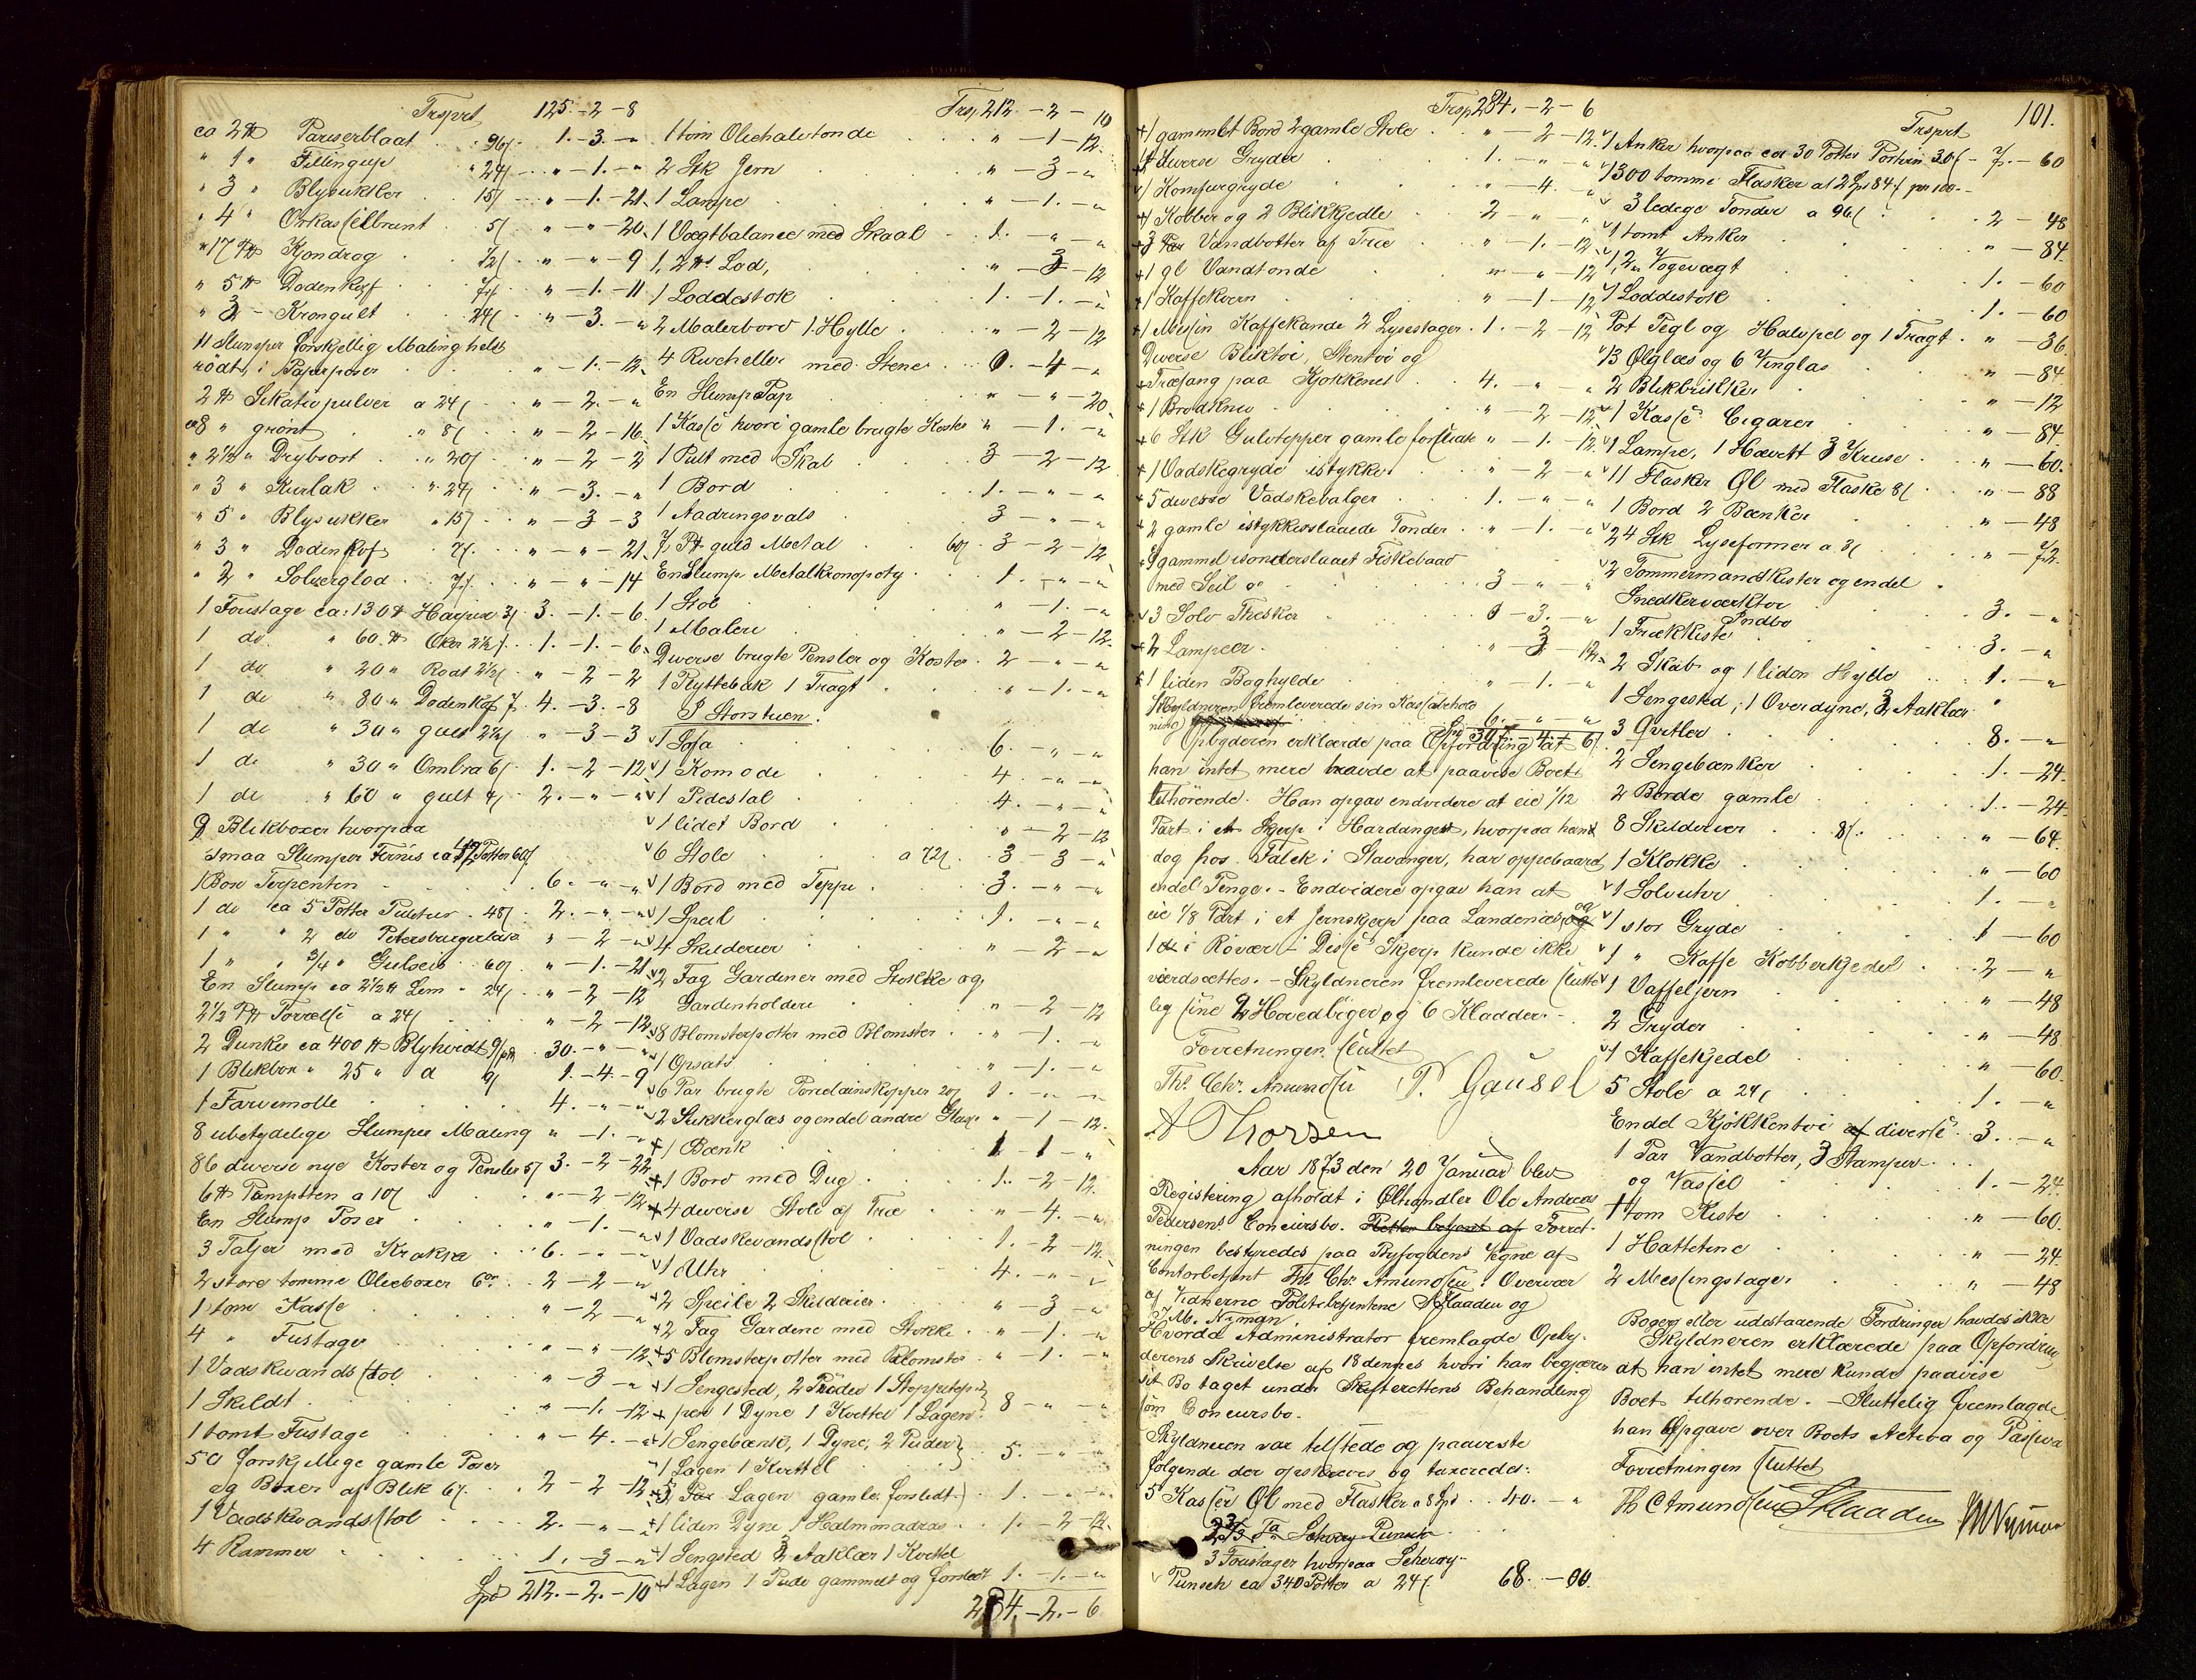 Trsprt 125.-2-8
ca 2 ℔ Pariserblaat 96/ 1.-3.-"
" 1 " 24/ "-1.-"
" 3 " Blysukker 15/ "-1.-21
" 4 " 5/ "-"-20
" 17 ℔ Kjøndrog 12/ "-"-9
" 5 ℔ Dodenkopf "-1.-11
" 3 - Krongult 24/ "-3.-"
11 Slumper forskjellig Maling heldt
rödt, i Papirposer "-1.-12
2 ℔ Sikativpulver a 24/ "-2.-"
ca 8 " grønt " 8/ "-2-16
" 2½ " " 20/ "-2-2
" 3 " Kurlak " 24/ "-3.-"
" 5 " Blysukker " 15/ "-3-3
" 3 " Dodenkopf 7/ "-"-21
" 2 " Solverglod 7/ "-"-14
1 Foustage ca: 130 ℔ 3/ 3.-1.-6
1 do " 60 ℔ Oker 2½/ 1.-1.-6
1 do " 20 " Rødt 2½/ "-2-2
1 do " 80 " Dodenkopf 7 4.-3.-8
1 do " 30 " gult 2½/ "-3-3
1 do " 30 " Ombra 6/ 1.-2-12
1 do " 60 " gult 4/ 2.-"-"
9 Blikboxer hvorpaa
smaa Slumper Fernis ca 12 Potter 60/
1 Box Terpentin 6.-"-"
1 do ca 5 Potter 48/ 2.-"-"
1 " " 2 do Petersburgerlak "-2-"
1 " " 3/4 " 60/ "-1.-21
En Slump ca 2½ ℔ Lim " 24/ "-2-12
2½ ℔ Torrelse a 24/ "-2-12
2 Dunker ca 400 ℔ Blyhvidt 9/ pr ℔ 30.-"-"
1 Blikbox " 25 " a 9/ 1.-4.-9
1 Farvemølle 4.-"-"
8 ubetydelige Slumper Maling "-1.-"
86 diverse nye Koster og Pensler 5/ 3.-2-22
6 ℔ Pampsten a 10/ "-2-12
En Slump Poser "-1.-"
3 Taljer med Krakker 6.-"-"
2 store tomme Olieboxer 6or 2-2-"
1 tom Kasse "-2-"
4 " Fustager "-"-12
1 Vadskevandsstol "-3-"
1 Skildt "-1.-12
1 tomt Fustage "-4.-"
50 forskjellige gamle Poser
og Boxer af Blik 6/ 2-2-12
1 Vaadskevandsstol 2.-"-"
4 Rammer 1.-3-"
Spd 212.-2.-10
Trsp 212.-2-10
1 tom Oliehalvtønde "-1-12
2 Stk Jern "-3-"
1 Lampe "-1.-"
1 Vægtbalance med Skaal 1.-"-"
1, 2 ℔s Lod, "-3-12
1 Loddestok 1.-1.-"
2 Malerbord 1 Hylle "-2-12
4 Riveheller med Stene 0.-4-"
En Slump Pap "-"-20
1 Kasse hvori gamle brugte Koster "-1.-"
1 Pult med Skab 3-2-12
1 Bord 1.-"-"
1 Aadringsvals 3-"-"
7 Pk guld Metal 60/ 3-2-12
En Slump Metalkronopoty 1.-"-"
1 Stol "-1.-"
1 Maleri "-2-12
Diverse brugte Pensler og Koster 2-"-"
1 Flyttebak 1 Tragt "-1.-"
I Storstuen.
1 Sofa 6.-"-"
1 Komode 4.-"-"
1 Pidestal 4.-"-"
1 lidet Bord "-2-12
6 Stole a 72/ 3-3-"
1 Bord med Teppe 3.-"-"
1 Speil 1.-"-"
4 Skilderier "-2-"
2 Fag Gardiner med Stokke og
Gardinholdere "-2-12
8 Blomsterpotter med Blomster "-1.-"
1 Opsats "-1.-"
6 Par brugte Porcelainskopper 20/ 1.-"-"
2 Sukkerglas og endel andre Glas "-1-12
1 Bænk 1-1-"
1 Bord med Dug 1.-2-12
4 diverse Stole af Træ "-4.-"
1 Vadskevandsstol 1.-2-12
1 Uhr 4.-"-"
2 Speile 2 Skilderier "-3-"
2 Fag Gardine med Stokke "-1.-"
5 Blomsterpotter med Blomster "-1.-"
1 Sengested, 2 Puder 1 Stoppetep
pe 1 Dyne 1 Kvittel 1 Lagen 8-"-"
1 Sengebænk, 1 Dyne, 2 Puder
1 Lagen 1 Kvittel 5.-"-"
5 Par Lagen gamle forsledt 1.-"-"
1 liden Dyne 1 Halmmadras 1.-2-12
1 Sengsted 2 Aaklær 1 Kvittel
1 Lagen 1 Pude gammelt og forsledt 1.-1.-"
284.-2.-6
Trsp 284.-2-6
1 gammelt Bord 2 gamle Stole "-2-12
4 diverse Gryder 1.-"-"
1 Komfurgryde "-4.-"
1 Kobber og 2 Blikkjedle 2-"-"
3 Par Vandbøtter af Træ "-1.-12
1 gl Vandtønde "-"-12
1 Kaffekvern "-1-12
1 Messin Kaffekande 2 Lysestager 1.-2-12
Diverse Bliktøi, Stentøi og
Træfang paa Kjøkkenet 4.-"-"
1 Brødkniv "-2-12
6 Stk Gulvtepper gamle forsledte "-1.-12
1 Vadskegryde istykker "-2-"
5 diverse Vadskebalger 1.-"-"
2 gamle istykkerslaaede Tønder "-1.-"
1 gammel isønderslaaet Fiskebaad
med Seil 3-"-"
3 Sølv Theskær 0-3.-"
2 Lamper "-3-12
1 liden Boghylde "-1.-"
Skyldneren fremleverede sin Kassabehold
ning 6.-"-"
Spd 307.-4.-6
Opbyderen erklærede paa Opfordring at
han intet mere havde at paavise Boet
tilhörende. Han opgav endvidere at eie 1/12
Part i et Skjerp i Hardanger, hvorpaa han
dog hos Falck i Stavanger, har oppebaaret
endel Penge. - Endvidere opgav han at
eie 1/8 Part i et Jernskjerp paa Landenæs og
1 do i Røvær - Disse Skjerp kunde ikke
værdsættes. - Skyldneren fremleverede slutte
lig sine 2 Hovedbøger og 6 Kladder. -
Forretningen sluttet
Th. Chr. Amundsen P. Gausel
A Thorsen
Aar 1873 den 20 Januar blev
Registering afholdt i Ølhandler Ole Andreas
Pedersens Concursbo. Retten betjent af Forret-
ningen bestyredes paa Byfogdens Vegne af
Contorbetjent Th. Chr. Amundsen. Overvær
af Vidnerne Politibetjentene S Haaden og
J. M. Nyman
Hvorda Administrator fremlagde Opby-
derens Skrivelse af 18 dennes hvori han begjærer
sit Bo taget under Skifterettens Behandling
som Concursbo.
Skyldneren var tilstede og paaviste
følgende der opskreves og taxeredes:
5 Kasser Øl med Flasker a 8 Spd 40.-"
3 Foustager hvorpaa Scherry-
Punsch ca 340 Potter a 24/ 68.-00.
101.
Trsprt
1 Anker hvorpaa ca 30 Potter Portvin 30/ - 7.-60
1300 tomme Flasker at 2 Spd 84/ pr 100.-
3 ledige Tønder a 96/ 2-48
1 tomt Anker "-84
1, 2 " Vogevægt 1.-60
1 Loddestok 1.-60
Pot Pegl og Halvpel og 1 Tragt "-36
13 Ølglas og 6 Vinglas "-84
2 Blikbrikker "-12
1 Kasse Cigarer "-84
1 Lampe, 1 Hævert 3 Kruse "-60
11 Flasker Øl med Flaske 8/ "-88
1 Bord 2 Bænker "-48
24 Stk Lyseformer a 3/ "-72
2 Tømmermandskister og endel
Snedkerværktøi 3.-"
Indbo
1 Trækkiste 3.-"
2 Skab og 1 liden Hylde 1.-"
1 Sengested, 1 Overdyne, 3 Aaklær
3 Qvitler 8.-"
2 Sengebænker 1.-24
2 Borde gamle 1.-24
8 Skilderier 8/ "-64
1 Klokke "-60
1 Sølvuhr 1.-"
1 stor Gryde 1-60
1 " Kaffe Kobberkjedel 2-"
1 Vaffeljern "-48
2 Gryder "-48
1 Kaffekjedel "-60
5 Stole a 24/ 1.-"
Endel Kjøkkentøi af diverse 3.-"
1 Par Vandbøtter, 3 Stamper
og Vassel 1.-24
1 tom Kiste "-60
1 Hattetine "-24
2 Messingstager "-48
Bøger eller udestaaende Fordringer havdes ikke
Skyldneren erklærede paa Opfordring
at han intet mere kunde paavise
Boet tilhørende. - Sluttelig fremlagde
han Opgave over Boets Activa og Passiva
Forretningen sluttet
Th C Amundsen S Haaden J M Nyman